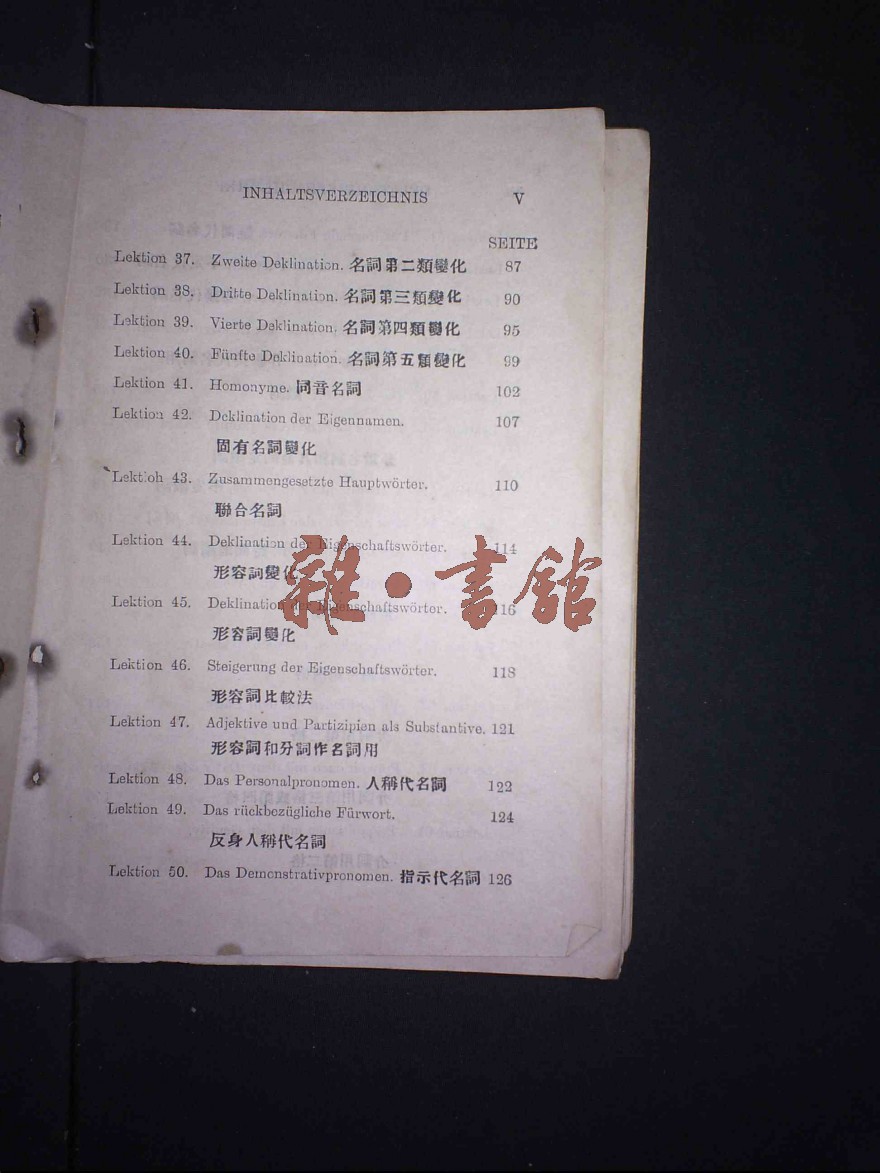 INHALTSVERZEICHNIS V
SEITE
Lektion 37. Zweite Deklination. 名詞第二類變化 87
Lektion 38. Dritte Deklination. 名詞第三類變化 90
Lektion 39. Vierte Deklination. 名詞第四類變化 95
Lektion 40. Fünfte Deklination. 名詞第五類變化 99
Lektion 41. Homonyme. 同音名詞 102
Lektion 42. Deklination der Eigennamen. 107
固有名詞變化
Lektioh 43. Zusammengesetzte Hauptwörter. 110
聯合名詞
Lektion 44. Deklination der Eigenschaftswörter. 114
形容詞變化
Lektion 45. Deklination der Eigenschaftswörter. 116
形容詞變化
Lektion 46. Steigerung der Eigenschaftswörter. 118
形容詞比較法
Lektion 47. Adjektive und Partizipien als Substantive. 121
形容詞和分詞作名詞用
Lektion 48. Das Personalpronomen. 人稱代名詞 122
Lektion 49. Das rückbezügliche Fürwort. 124
反身人稱代名詞
Lektion 50. Das Demonstrativpronomen. 指示代名詞 126
雜·書館